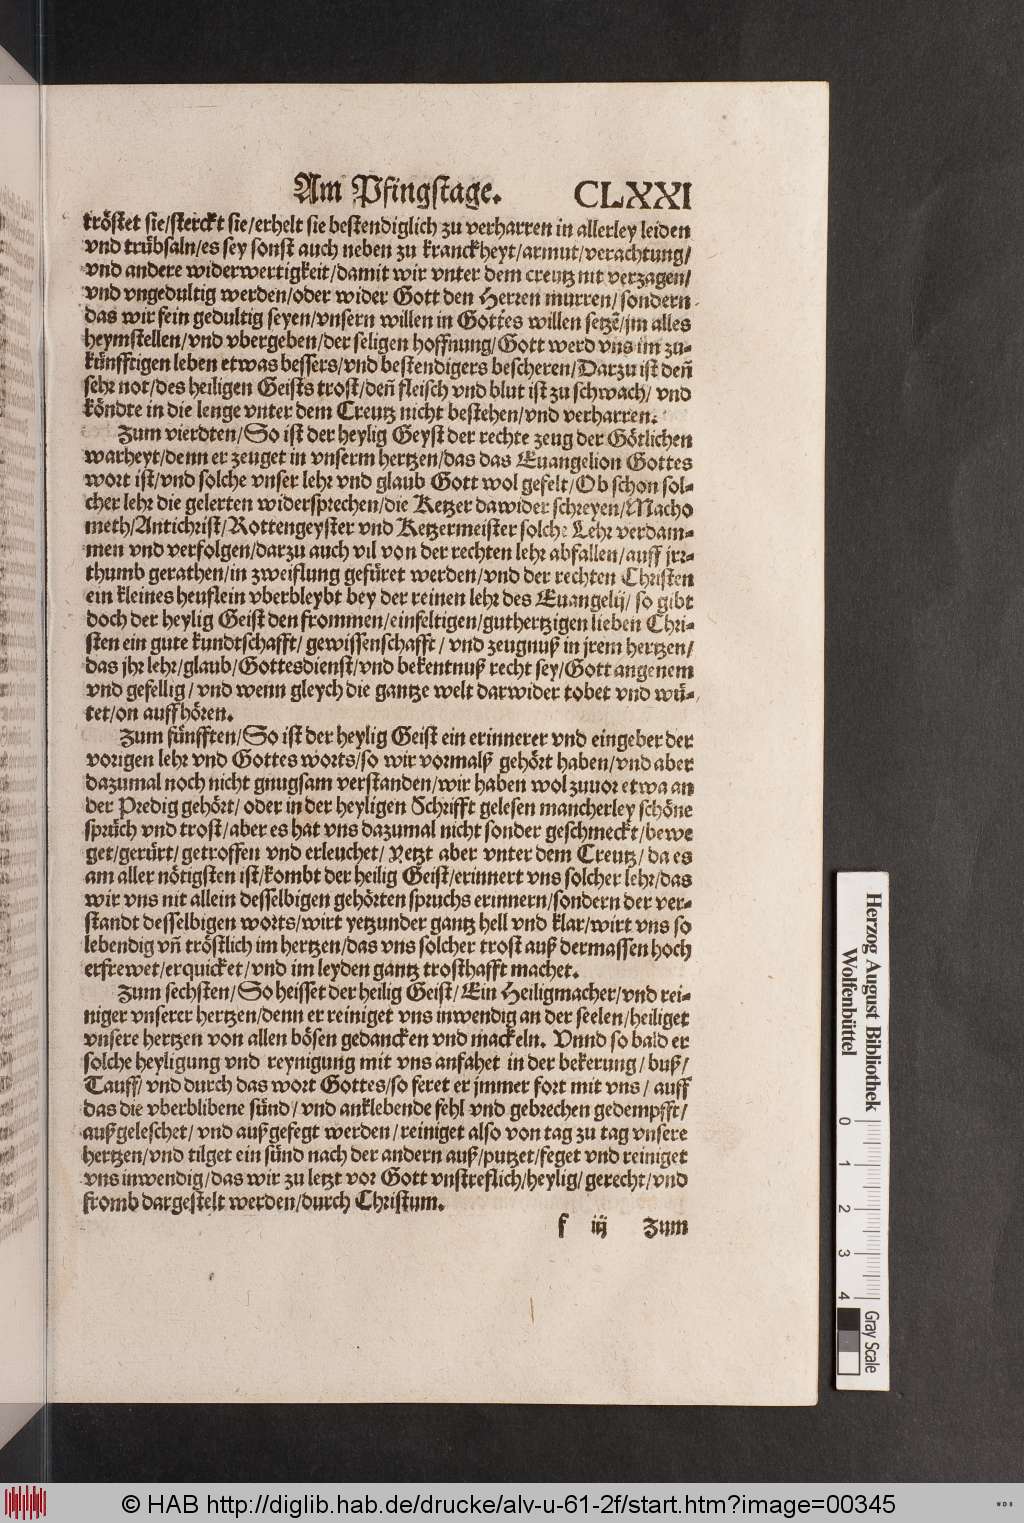 Am Pfingstage. CLXXI
tröstet sie/sterckt sie/erhelt sie bestendiglich zu verharren in allerley leiden
vnd trübsaln/es sey sonst auch neben zu kranckheyt/armut/verachtung/
vnd andere widerwertigkeit/damit wir vnter dem creutz nit verzagen/
vnd vngedultig werden/oder wider Gott den Herren murren/sondern
das wir fein gedultig seyen/vnsern willen in Gottes willen setzẽ/jm alles
heymstellen/vnd vbergeben/der seligen hoffnung/Gott werd vns im zu-
künfftigen leben etwas bessers/vnd bestendigers bescheren/Darzu ist deñ
sehr not/des heiligen Geists trost/deñ fleisch vnd blut ist zu schwach/vnd
köndte in die lenge vnter dem Creutz nicht bestehen/vnd verharren.
Zum vierdten/So ist der heylig Geyst der rechte zeug der Götlichen
warheyt/denn er zeuget in vnserm hertzen/das das Euangelion Gottes
wort ist/vnd solche vnser lehr vnd glaub Gott wol gefelt/Ob schon sol-
cher lehr die gelerten widersprechen/die Ketzer dawider schreyen/Macho
meth/Antichrist/Rottengeyster vnd Ketzermeister solche Lehr verdam-
men vnd verfolgen/darzu auch vil von der rechten lehr abfallen/auff jrr-
thumb gerathen/in zweiflung gefüret werden/vnd der rechten Christen
ein kleines heuflein vberbleybt bey der reinen lehr des Euangelij/so gibt
doch der heylig Geist den frommen/einfeltigen/guthertzigen lieben Chri-
sten ein gute kundtschafft/gewissenschafft/vnd zeugnuß in jrem hertzen/
das jhr lehr/glaub/Gottesdienst/vnd bekentnuß recht sey/Gott angenem
vnd gefellig/vnd wenn gleych die gantze welt darwider tobet vnd wü-
tet/on auffhören.
Zum fünfften/So ist der heylig Geist ein erinnerer vnd eingeber der
vorigen lehr vnd Gottes worts/so wir vormalß gehört haben/vnd aber
dazumal noch nicht gnugsam verstanden/wir haben wol zuuor etwa an
der Predig gehört/oder in der heyligen Schrifft gelesen mancherley schöne
sprüch vnd trost/aber es hat vns dazumal nicht sonder geschmeckt/bewe
get/gerürt/getroffen vnd erleuchet/Yetzt aber vnter dem Creutz/da es
am aller nötigsten ist/kombt der heilig Geist/erinnert vns solcher lehr/das
wir vns nit allein desselbigen gehörten spruchs erinnern/sondern der ver-
standt desselbigen worts/wirt yetzunder gantz hell vnd klar/wirt vns so
lebendig vñ tröstlich im hertzen/das vns solcher trost auß dermassen hoch
erfrewet/erquicket/vnd im leyden gantz trosthafft machet.
Zum sechsten/So heisset der heilig Geist/Ein Heiligmacher/vnd rei-
niger vnserer hertzen/denn er reiniget vns inwendig an der seelen/heiliget
vnsere hertzen von allen bösen gedancken vnd mackeln. Vnnd so bald er
solche heyligung vnd reynigung mit vns anfahet in der bekerung/buß/
Tauff/vnd durch das wort Gottes/so feret er jmmer fort mit vns/auff
das die vberblibene sünd/vnd anklebende fehl vnd gebrechen gedempfft/
außgeleschet/vnd außgefegt werden/reiniget also von tag zu tag vnsere
hertzen/vnd tilget ein sünd nach der andern auß/putzet/feget vnd reiniget
vns inwendig/das wir zu letzt vor Gott vnstreflich/heylig/gerecht/vnd
fromb dargestelt werden/durch Christum.
f iij Zum
Herzog August Bibliothek
Wolfenbüttel
0 1 2 3 4
Gray Scale
© HAB http://diglib.hab.de/drucke/alv-u-61-2f/start.htm?image=00345